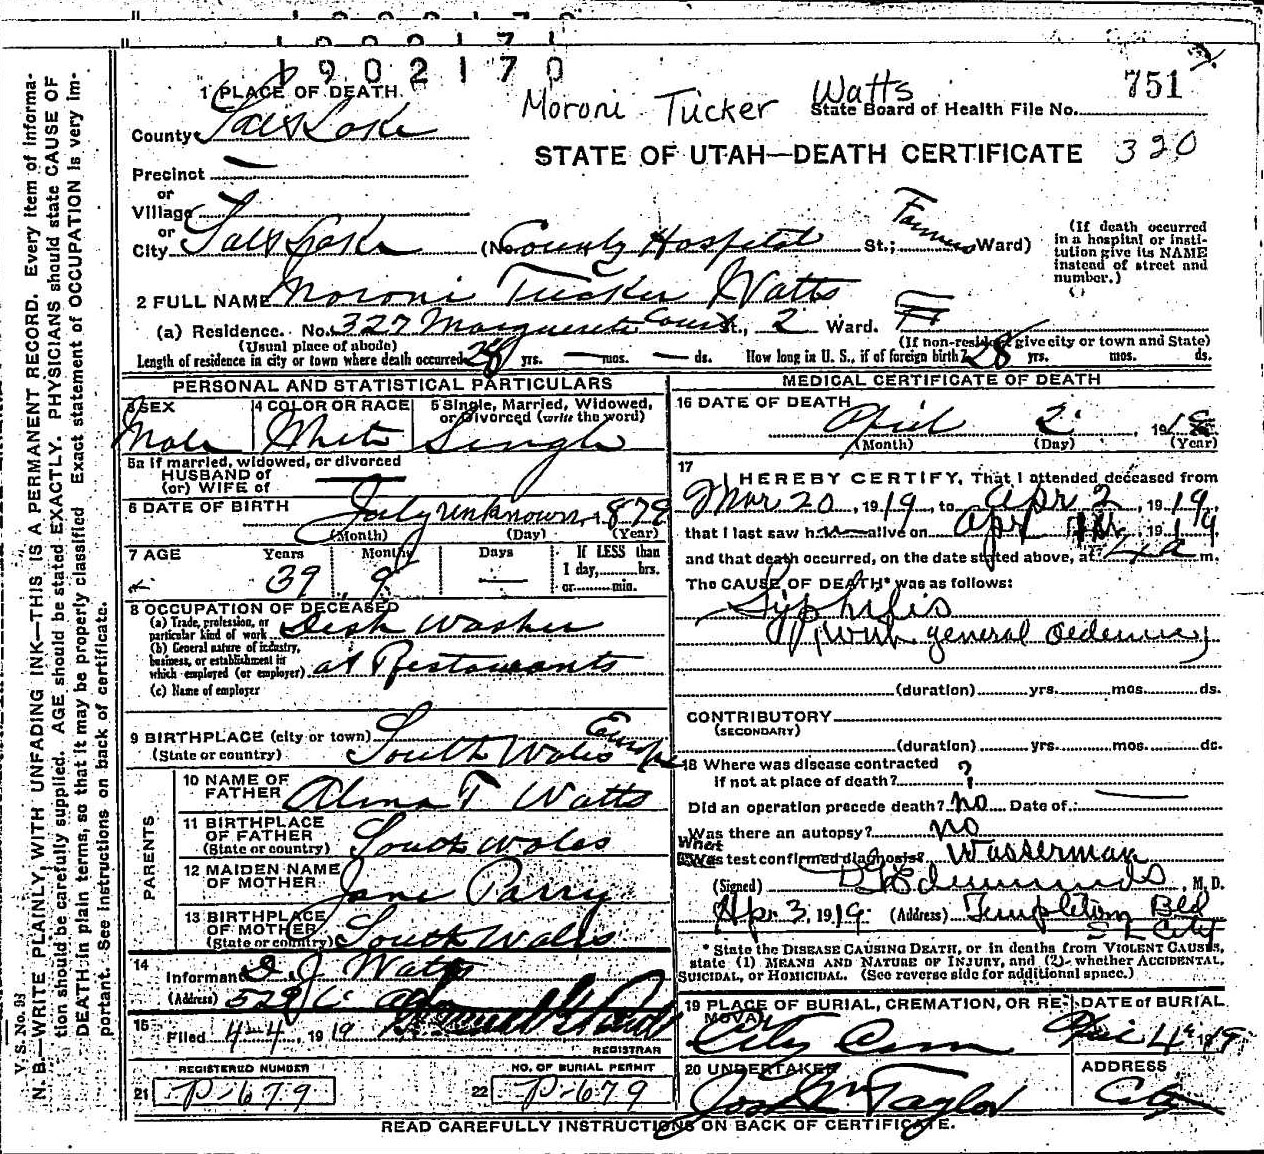 1902170
1902170
751
Moroni Tucker Watts
State Board of Health File No.
STATE OF UTAH—DEATH CERTIFICATE 320
1 PLACE OF DEATH.
County Salt Lake
Precinct —
or
Village
or
City Salt Lake (No County Hospital St.; Farmers Ward)
(If death occurred
in a hospital or insti-
tution give its NAME
instead of street and
number.)
2 FULL NAME Moroni Tucker Watts
(a) Residence. No. 327 Marguerite Court St., 2 Ward.
(Usual place of abode) (If non-resident give city or town and State)
Length of residence in city or town where death occurred 28 yrs. — mos. — ds. How long in U. S., if of foreign birth? 28 yrs. mos. ds.
PERSONAL AND STATISTICAL PARTICULARS
3 SEX 4 COLOR OR RACE 5 Single, Married, Widowed,
or Divorced (write the word)
Male White Single
5a If married, widowed, or divorced
HUSBAND of
(or) WIFE of —
6 DATE OF BIRTH July unknown, 1879
(Month) (Day) (Year)
7 AGE Years Months Days If LESS than
1 day,......hrs.
or......min.
39 9 —
8 OCCUPATION OF DECEASED
(a) Trade, profession, or
particular kind of work Dish Washer
(b) General nature of industry,
business, or establishment in
which employed (or employer) at Restaurants
(c) Name of employer
9 BIRTHPLACE (city or town) South Wales Europe
(State or country)
PARENTS
10 NAME OF
FATHER Alma T Watts
11 BIRTHPLACE
OF FATHER
(State or country) South Wales
12 MAIDEN NAME
OF MOTHER Jane Parry
13 BIRTHPLACE
OF MOTHER
(State or country) South Wales
14
Informant D. J. Watts
(Address) 529 6
15
Filed 4-4, 1919
REGISTRAR
REGISTERED NUMBER NO. OF BURIAL PERMIT
21 P-679 22 P-679
MEDICAL CERTIFICATE OF DEATH
16 DATE OF DEATH
April 2 191
(Month) (Day) (Year)
17
I HEREBY CERTIFY, That I attended deceased from
Mar 20, 1919, to Apr 2, 1919,
that I last saw h m alive on Apr 1st, 1919,
and that death occurred, on the date stated above, at 4 a m.
The CAUSE OF DEATH* was as follows:
Syphilis
(with general oedema)
(duration) yrs. mos. ds.
CONTRIBUTORY
(SECONDARY)
(duration) yrs. mos. ds.
18 Where was disease contracted
if not at place of death? ?
Did an operation precede death? no Date of: —
Was there an autopsy? no
What test confirmed diagnosis? Wasserman
(Signed) Edmunds, M. D.
Apr 3, 1919 (Address) Templeton Bld
S L City
* State the DISEASE CAUSING DEATH, or in deaths from VIOLENT CAUSES,
state (1) MEANS AND NATURE OF INJURY, and (2) whether ACCIDENTAL,
SUICIDAL, or HOMICIDAL. (See reverse side for additional space.)
19 PLACE OF BURIAL, CREMATION, OR RE-
MOVAL
DATE of BURIAL
City Cem Apr 4th 1919
20 UNDERTAKER ADDRESS
Jos Wm Taylor City
READ CAREFULLY INSTRUCTIONS ON BACK OF CERTIFICATE.
V. S. No. 98
N. B.—WRITE PLAINLY, WITH UNFADING INK—THIS IS A PERMANENT RECORD. Every item of informa-
tion should be carefully supplied. AGE should be stated EXACTLY. PHYSICIANS should state CAUSE OF
DEATH in plain terms, so that it may be properly classified. Exact statement of OCCUPATION is very im-
portant. See instructions on back of certificate.